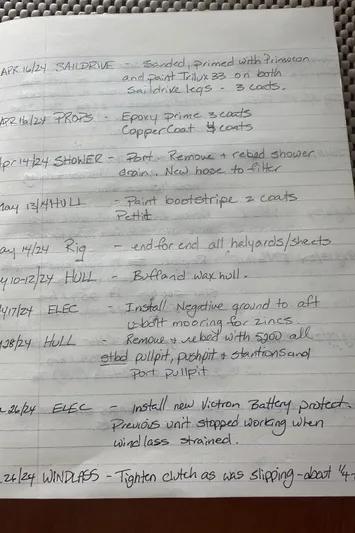 APR 16/24 SAILDRIVE - Sanded, primed with Primocon
and paint Trilux 33 on both
Saildrive legs - 3 coats.
APR 16/24 PROPS - Epoxy prime 3 coats
CopperCoat 4 coats
Apr 14/24 SHOWER - Port. Remove + rebed shower
drain. New hose to filter
May 13/24 HULL - Paint bootstripe 2 coats
Pettit
ay 14/24 Rig - end for end all halyards/sheets
y 10-12/24 HULL - Buff and wax hull.
17/24 ELEC - Install Negative ground to aft
u-bolt mooring for zincs
28/24 HULL - Remove + rebed with 5200 all
stbd pullpit, pushpit + stantions and
Port pullpit
26/24 ELEC - Install new Victron Battery protect.
Previous unit stopped working when
windlass strained.
24/24 WINDLASS - Tighten clutch as was slipping - about 1/4